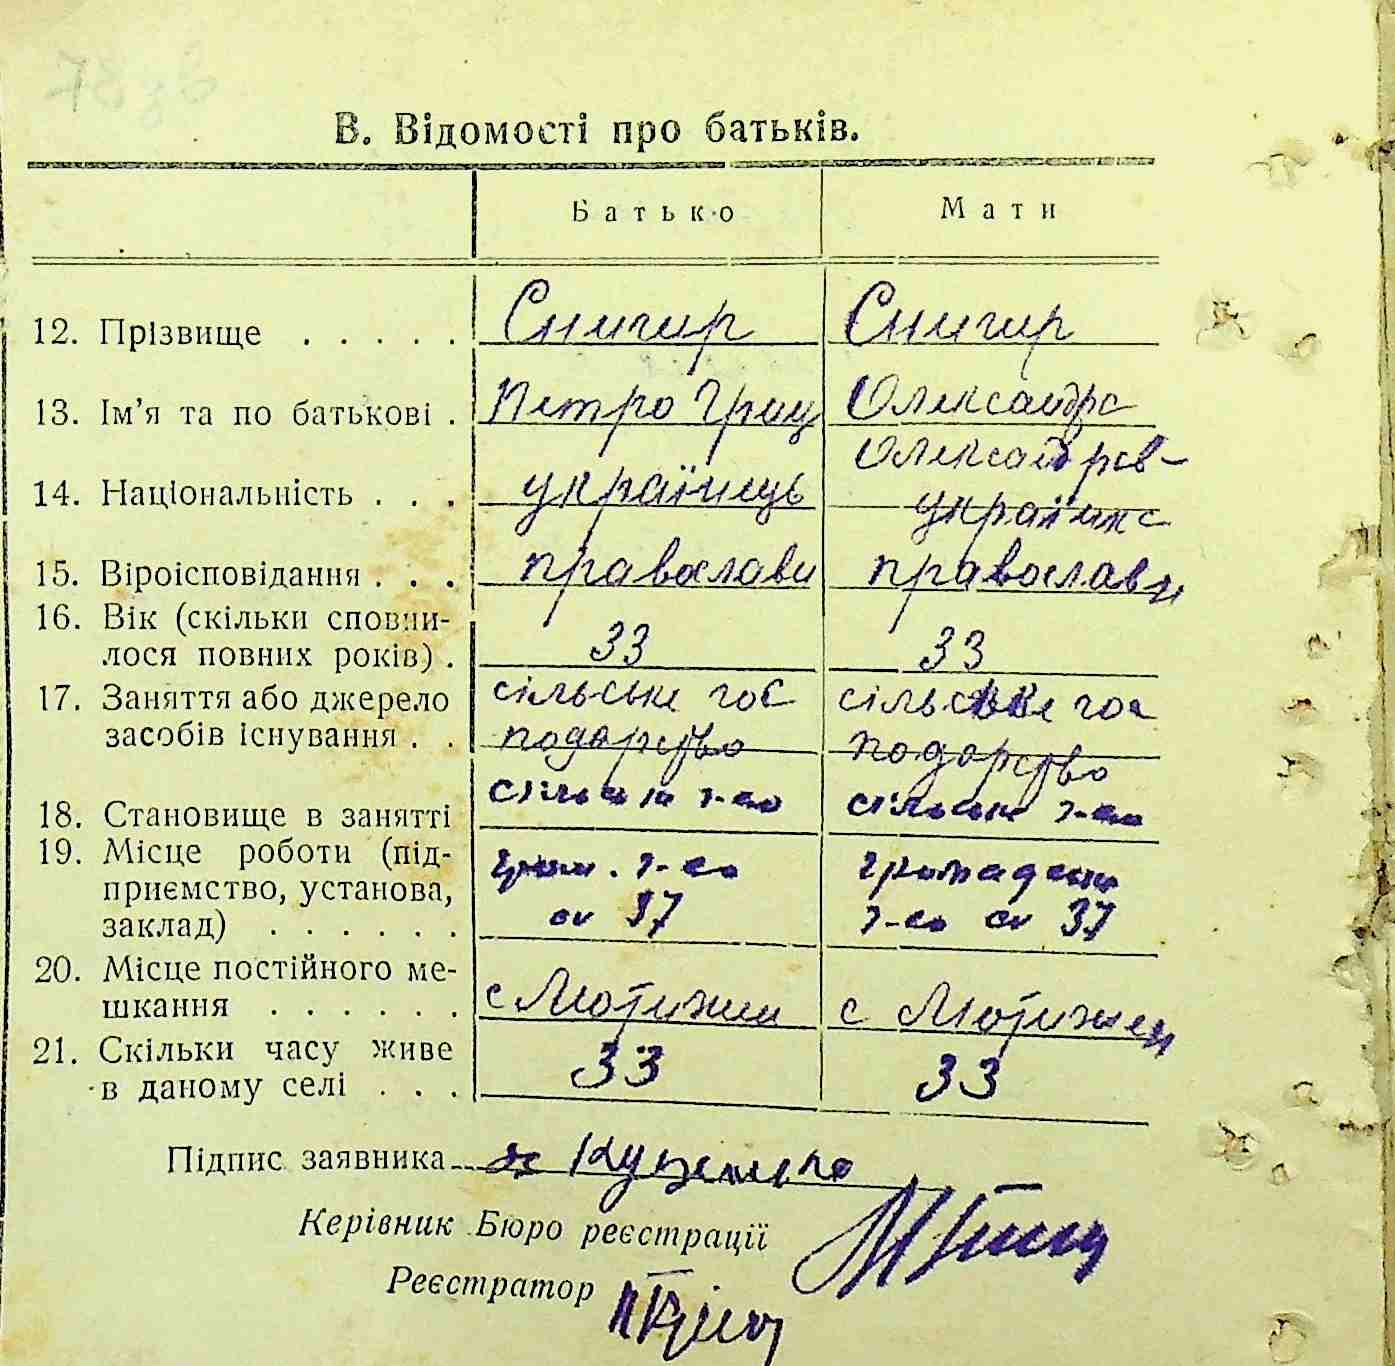 78 зв
В. Відомості про батьків.
Батько Мати
12. Прізвище . . . . . Снигир Снигир
13. Ім’я та по батькові . Петро Григ Олександра
Олександров-
14. Національність . . . українець українка
15. Віроісповідання . . . православн православн
16. Вік (скільки сповни-
лося повних років) . 33 33
17. Заняття або джерело сільське гос сільське гос
засобів існування . . подарство подарство
18. Становище в занятті сільське г-во сільське г-во
19. Місце роботи (під- гром. г-во громадськ
приємство, установа, 37 г-во 37
заклад) . . . . . .
20. Місце постійного ме-
шкання . . . . . . с Лютіжи с Лютіжи
21. Скільки часу живе
в даному селі . . . 33 33
Підпис заявника
Керівник Бюро реєстрації
Реєстратор